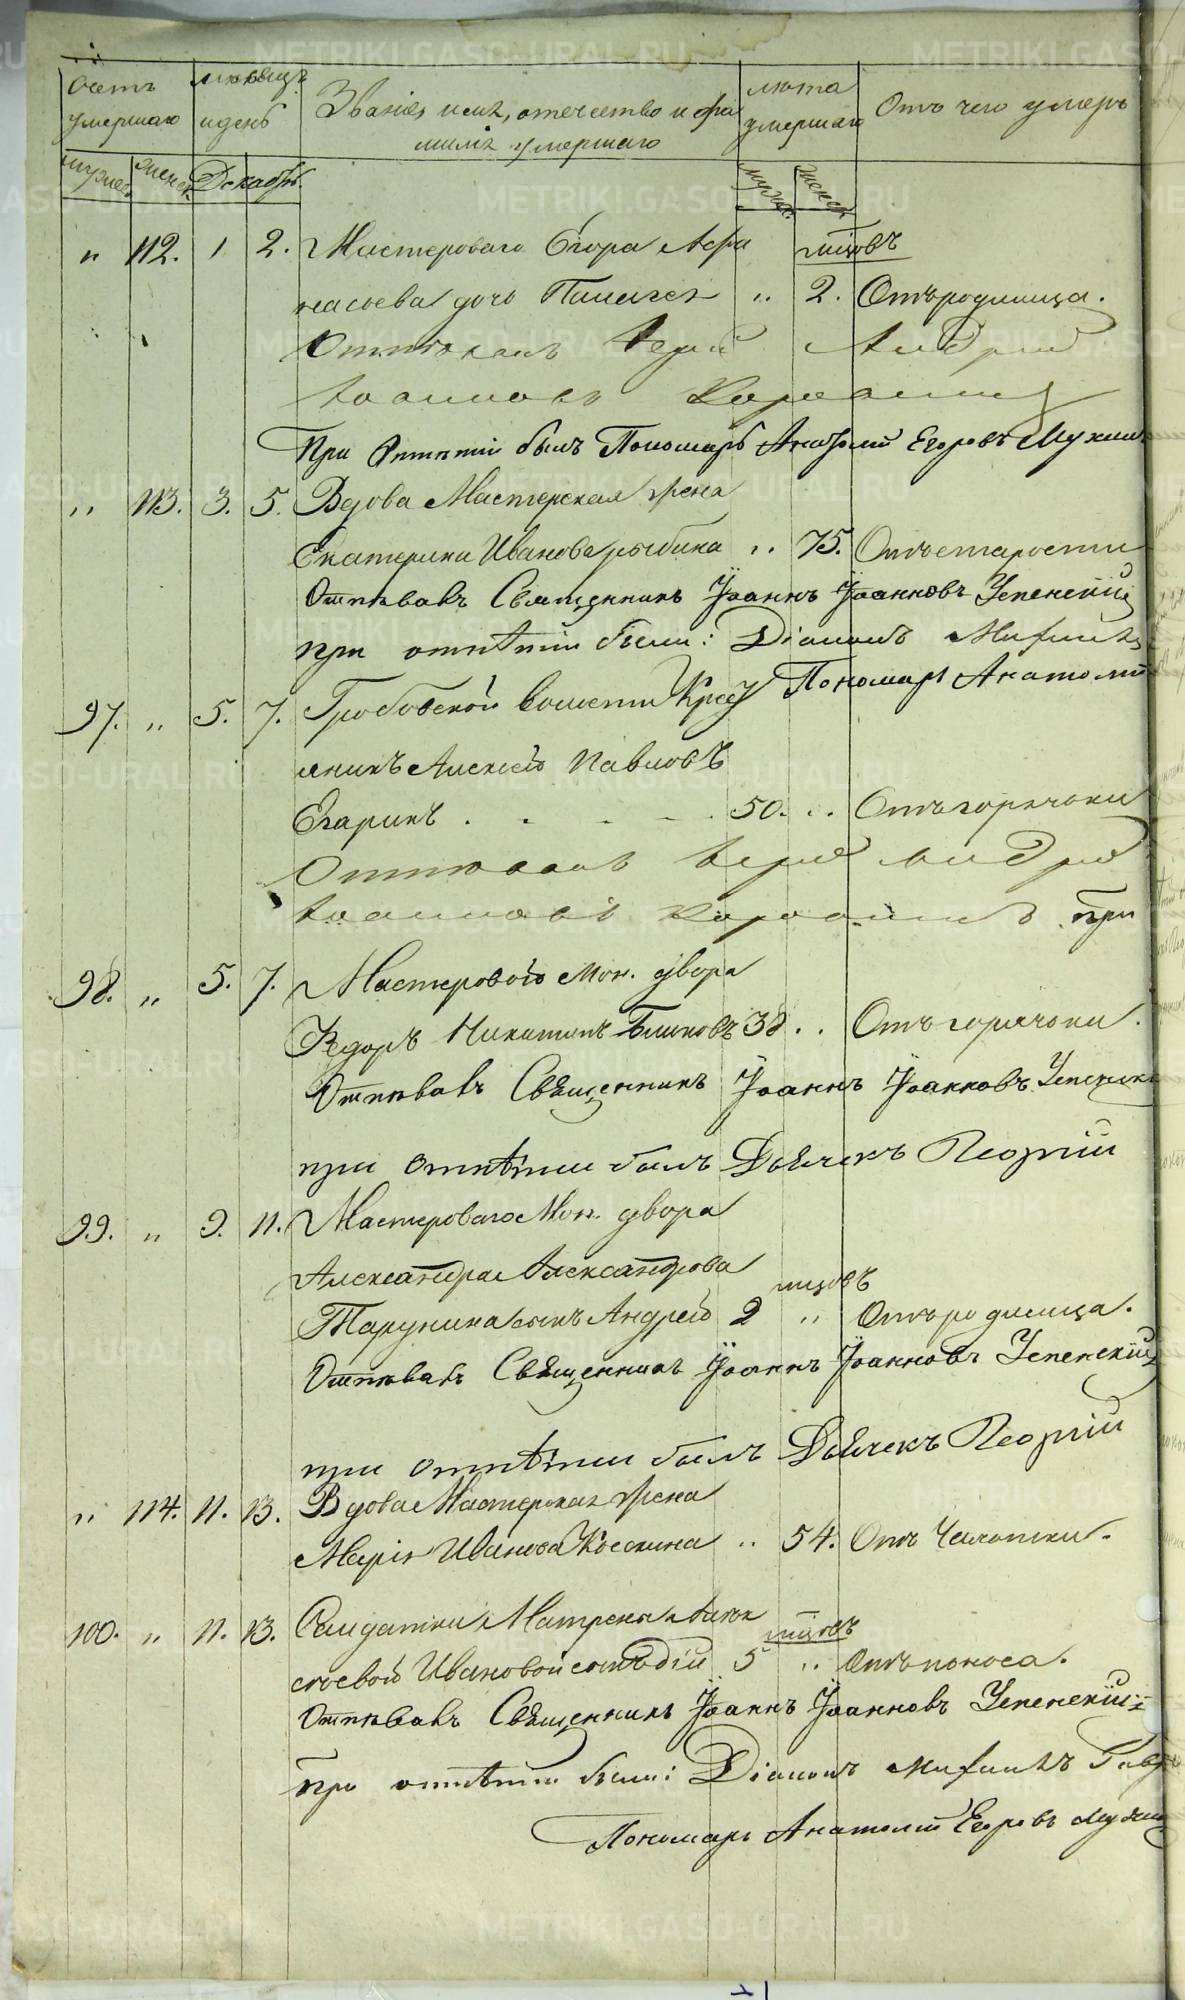 Счетъ умершаго
мѣсяцъ и день
Званіе имя, отечество и фа
милія умершаго
лѣта умершаго
Отъ чего умеръ
мужес. женск. Декабрь.
мужес. женск.
" 112. 1 2. Мастероваго Егора Афа
мѣсяцовъ
насьева дочь Пелагея " 2. Отъ родимица.
Отпѣвалъ Іерей Андрей
Іоанновъ
При Отпѣтіи былъ Пономарь Анатолій Егоровъ Мухинъ
" 113. 3. 5. Вдова Мастерская жена
Екатерина Иванова Рыбина " 75. Отъ старости
Отпѣвалъ Священникъ Іоаннъ Іоанновъ Успенскій
при отпѣтіи были: Діаконъ
Пономарь Анатолій
97. " 5. 7. Гробовской волости Крес
янинъ Алексѣй Павловъ
Егаринъ . . . . . 50. " Отъ горячьки
Отпѣвалъ Іерей Андрей
Іоанновъ при
98. " 5. 7. Мастеровой Мон. двора
Федоръ Никитинъ Блиновъ 38 " Отъ горячьки.
Отпѣвалъ Священникъ Іоаннъ Іоанновъ Успенскій
при отпѣтіи былъ Дьячекъ Георгій
99. " 9. 11. Мастероваго Мон. двора
Александра Александрова
мѣсяцовъ
Тарунина сынъ Андрей 2 " Отъ родимица.
Отпѣвалъ Священникъ Іоаннъ Іоанновъ Успенскій
при отпѣтіи былъ Дьячекъ Георгій
" 114. 11. 13. Вдова Мастерская жена
Марія Иванова " 54. Отъ Чахотки.
100. " 11. 13. Салдатки Матрены
мѣсяцовъ
Ивановой сынъ 5 " Отъ поноса.
Отпѣвалъ Священникъ Іоаннъ Іоанновъ Успенскій
при отпѣтіи были: Діаконъ
Пономарь Анатолій Егоровъ Мухинъ
METRIKI.GASO-URAL.RU